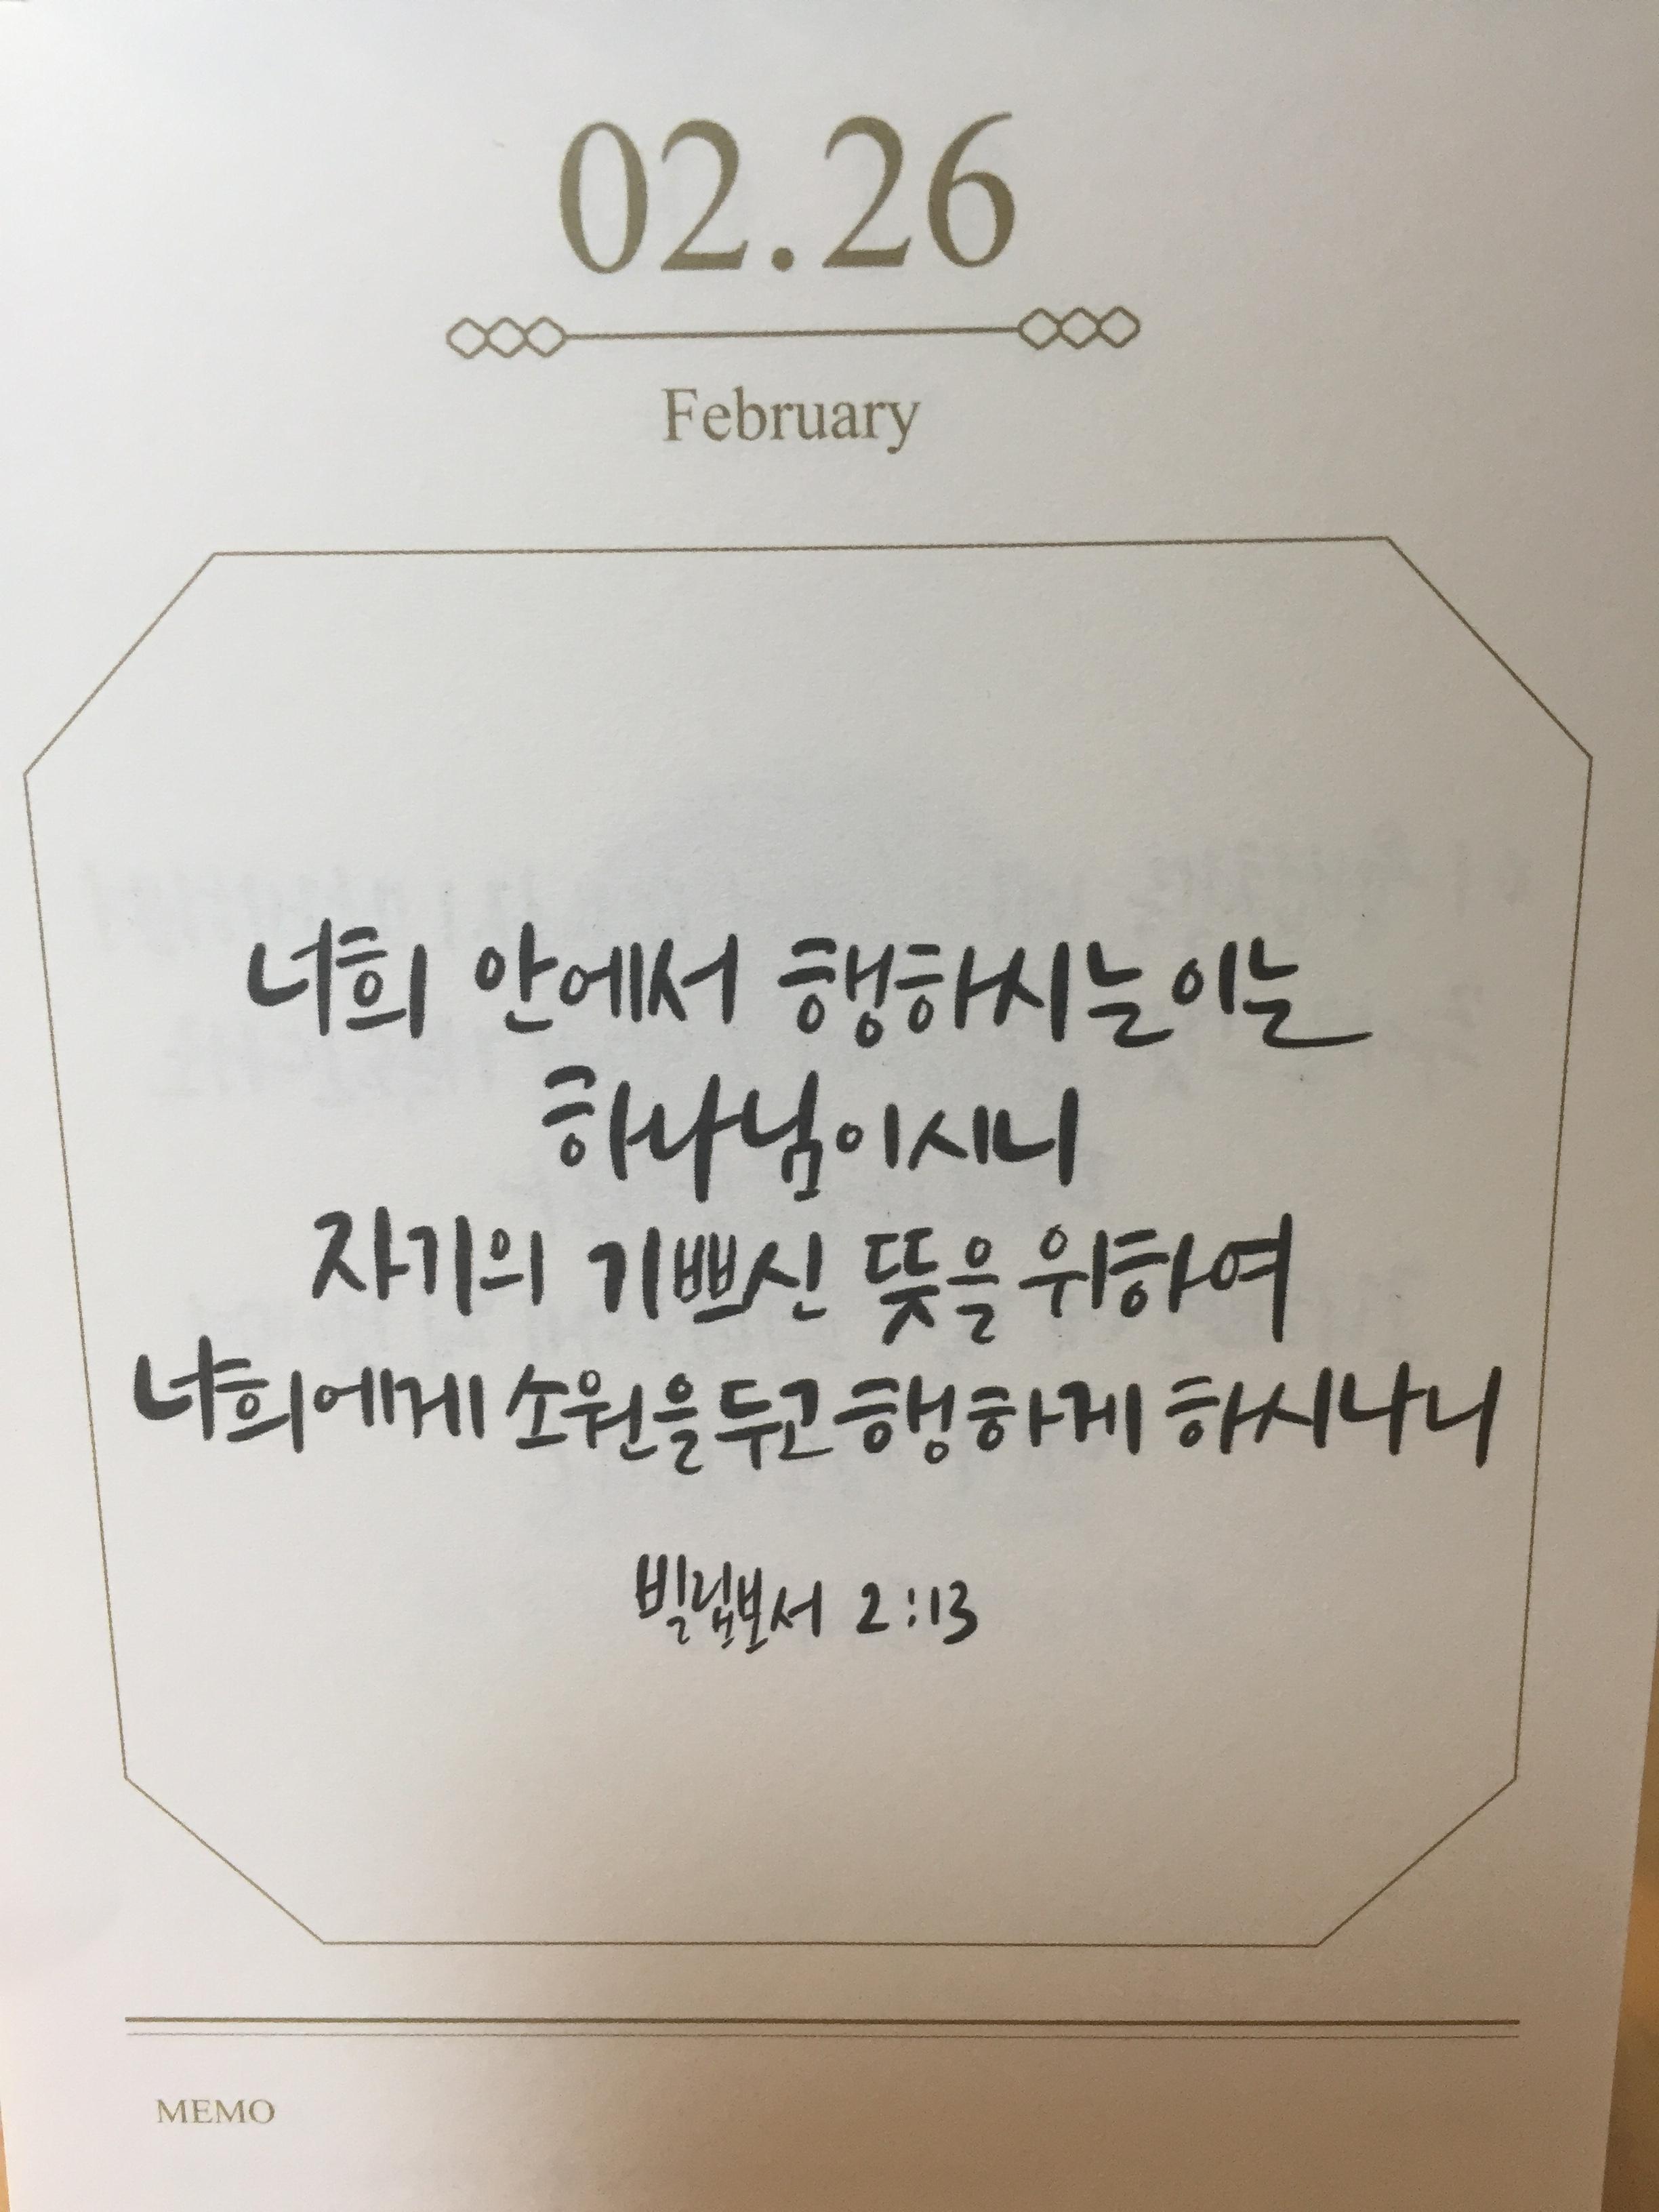 02.26
February
너희 안에서 행하시는이는
하나님이시니
자기의 기쁘신 뜻을 위하여
너희에게 소원을 두고 행하게 하시나니
빌립보서 2:13
MEMO